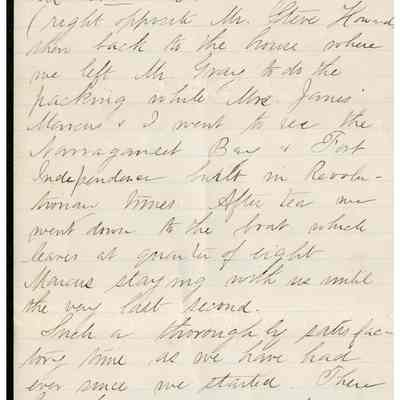 (right opposite Mr. Steve Howard
then back to the house where
we left Mr Gray to do the
packing while Mrs James
Marcus & I went to see the
Narraganset Bay & Fort
Independence built in Revolu-
tionary times. After tea we
went down to the boat which
leaves at quarter of eight
Marcus staying with us until
the very last second.
Such a thoroughly satisfac-
tory time as we have had
ever since we started. There